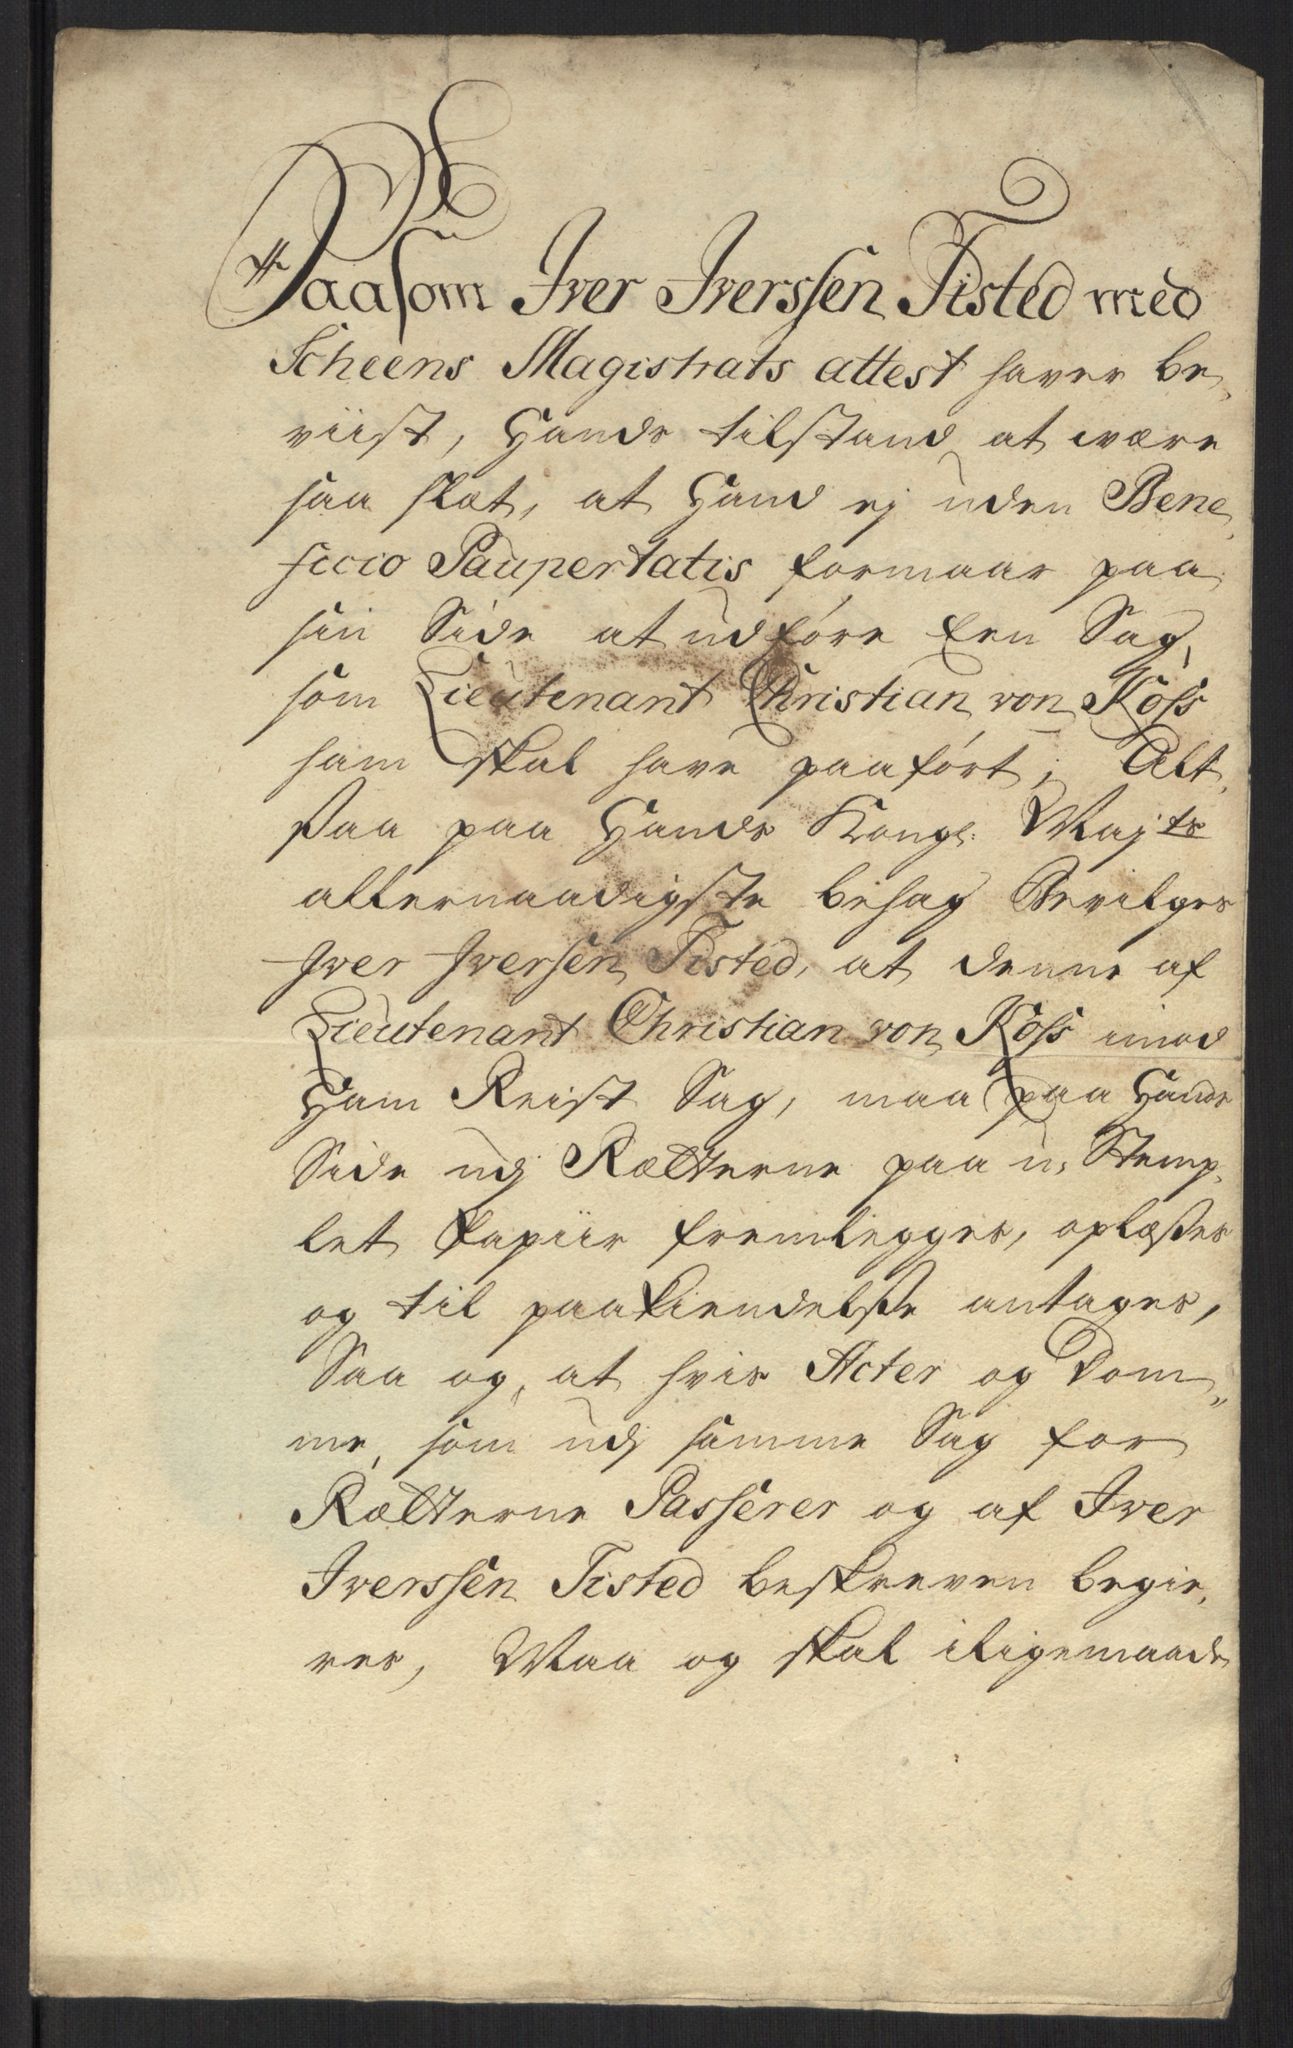 Saasom Iver Iverssen Tisted med
Scheens Magistrats attest haver be,
viist, Hands tilstand at være
saa slæt, at Hand ej uden Bene,
ficio Paupertatis formaar paa
sin Side at udføre Een Sag,
som Lieutenant Christian von Koss
ham skal have paaført; Alt,
saa paa Hands Kongl: Maj:ts
allernaadigste behag Bevilges
Iver Iversen Tisted, at denne af
Lieutenant Christian von Koss imod
Ham Reist Sag, maa paa Hands
Side udj Rætterne paa u, Stemp,
let Papiir fremlegges, oplæsses
og til paakiendelsse antages,
Saa og, at hvis Acter og Dom,,
me, som udj samme Sag for
Rætterne Passerer og af Iver
Iverssen Tisted beskreven begie,
res, Maa og skal iligemaade